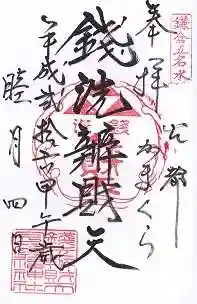 鎌倉五名水
奉拝
古都
かまくら
錢洗辨財天
平成弐拾六甲午歳
睦月四日